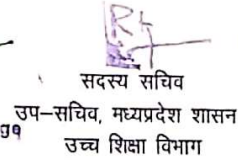 सदस्य सचिव
उप–सचिव, मध्यप्रदेश शासन
उच्च शिक्षा विभाग